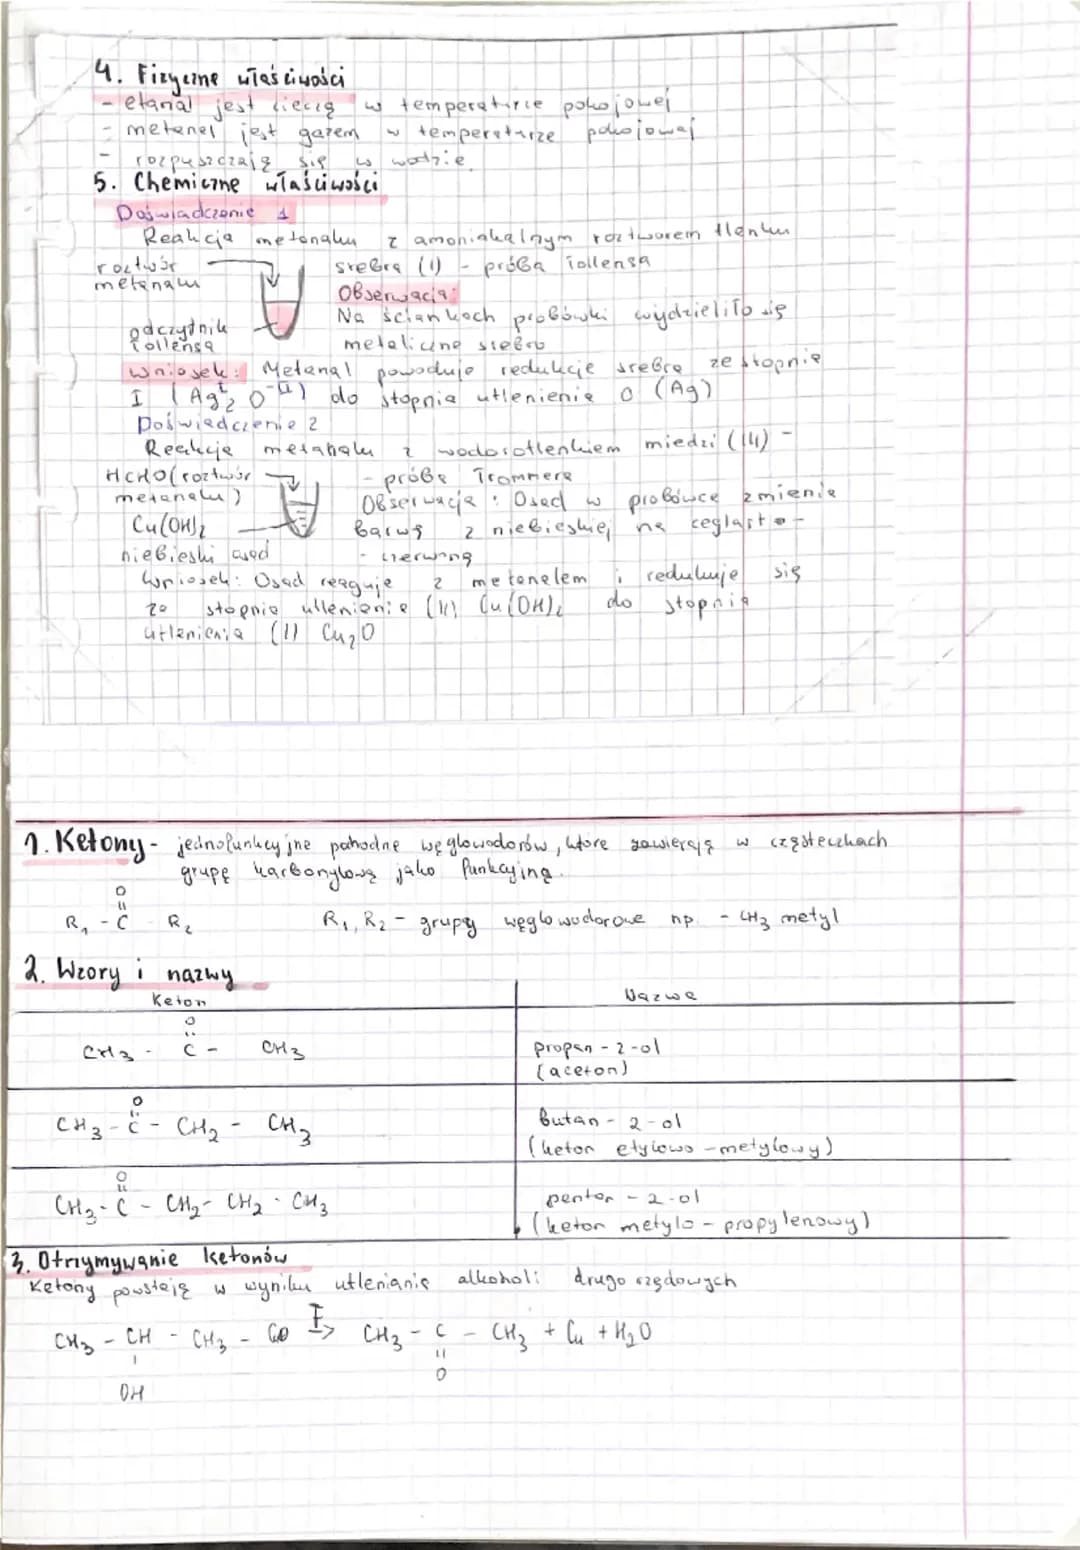 4. Fizyczne właściwości
- etanal jest cieczą w temperaturze pokojowej
- metanal jest gazem w temperaturze pokojowej
- rozpuszczają się w wodzie
5. Chemiczne właściwości
Doświadczenie 1
Reakcja metanalu z amoniakalnym roztworem tlenku
srebra (I) - próba Tollensa
roztwór
metanalu
Obserwacja:
Na ściankach probówki wydzieliło się
metaliczne srebro
odczytnik
Tollensa
Wniosek: Metanal powoduje redukcje srebra ze stopnia
I (Ag₂ᴵ O⁻ᴵᴵ) do stopnia utlenienia 0 (Ag)
Doświadczenie 2
Reakcja metanalu z wodorotlenkiem miedzi (III) -
- próba Trommera
HCHO (roztwór
metanalu)
Obserwacja: Osad w probówce zmienia
barwę z niebieskiej na ceglasto -
- czerwoną
Cu(OH)₂
niebieski osad
Wniosek: Osad reaguje z metanalem i redukuje się
ze stopnia utlenienia (II) Cu(OH)₂ do stopnia
utlenienia (I) Cu₂O
1. Ketony - jednofunkcyjne pohodne węglowodorów, które zawierają w cząsteczkach
grupę karbonylową jako funkcyjną.
O
॥
R₁ - C R₂ R₁, R₂ - grupy węglowodorowe np. - CH₃ metyl
2. Wzory i nazwy
Keton Nazwa
O
CH₃ - C - CH₃ propan - 2 - ol
(aceton)
O
CH₃ - C - CH₂ - CH₃ butan - 2 - ol
(keton etylowo - metylowy)
O
CH₃ - C - CH₂ - CH₂ - CH₃ pentan - 2 - ol
(keton metylo - propylenowy)
3. Otrzymywanie ketonów
Ketony powstają w wyniku utleniania alkoholi drugorzędowych
CH₃ - CH - CH₃ - CuO T→ CH₃ - C - CH₃ + Cu + H₂O
OH O